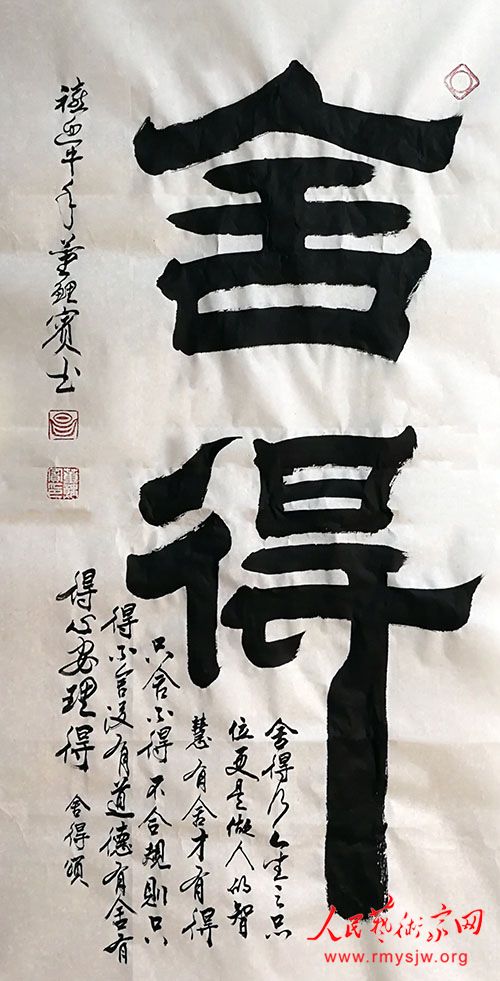 舍得
舍得乃人生之品
位更是做人的智
慧有舍才有得
只舍不得不合規則只
得不舍没有道德有舍有
得心安理得 舍得頌
禧迎牛年董鲤賓书
人民藝術家网
www.rmysjw.org